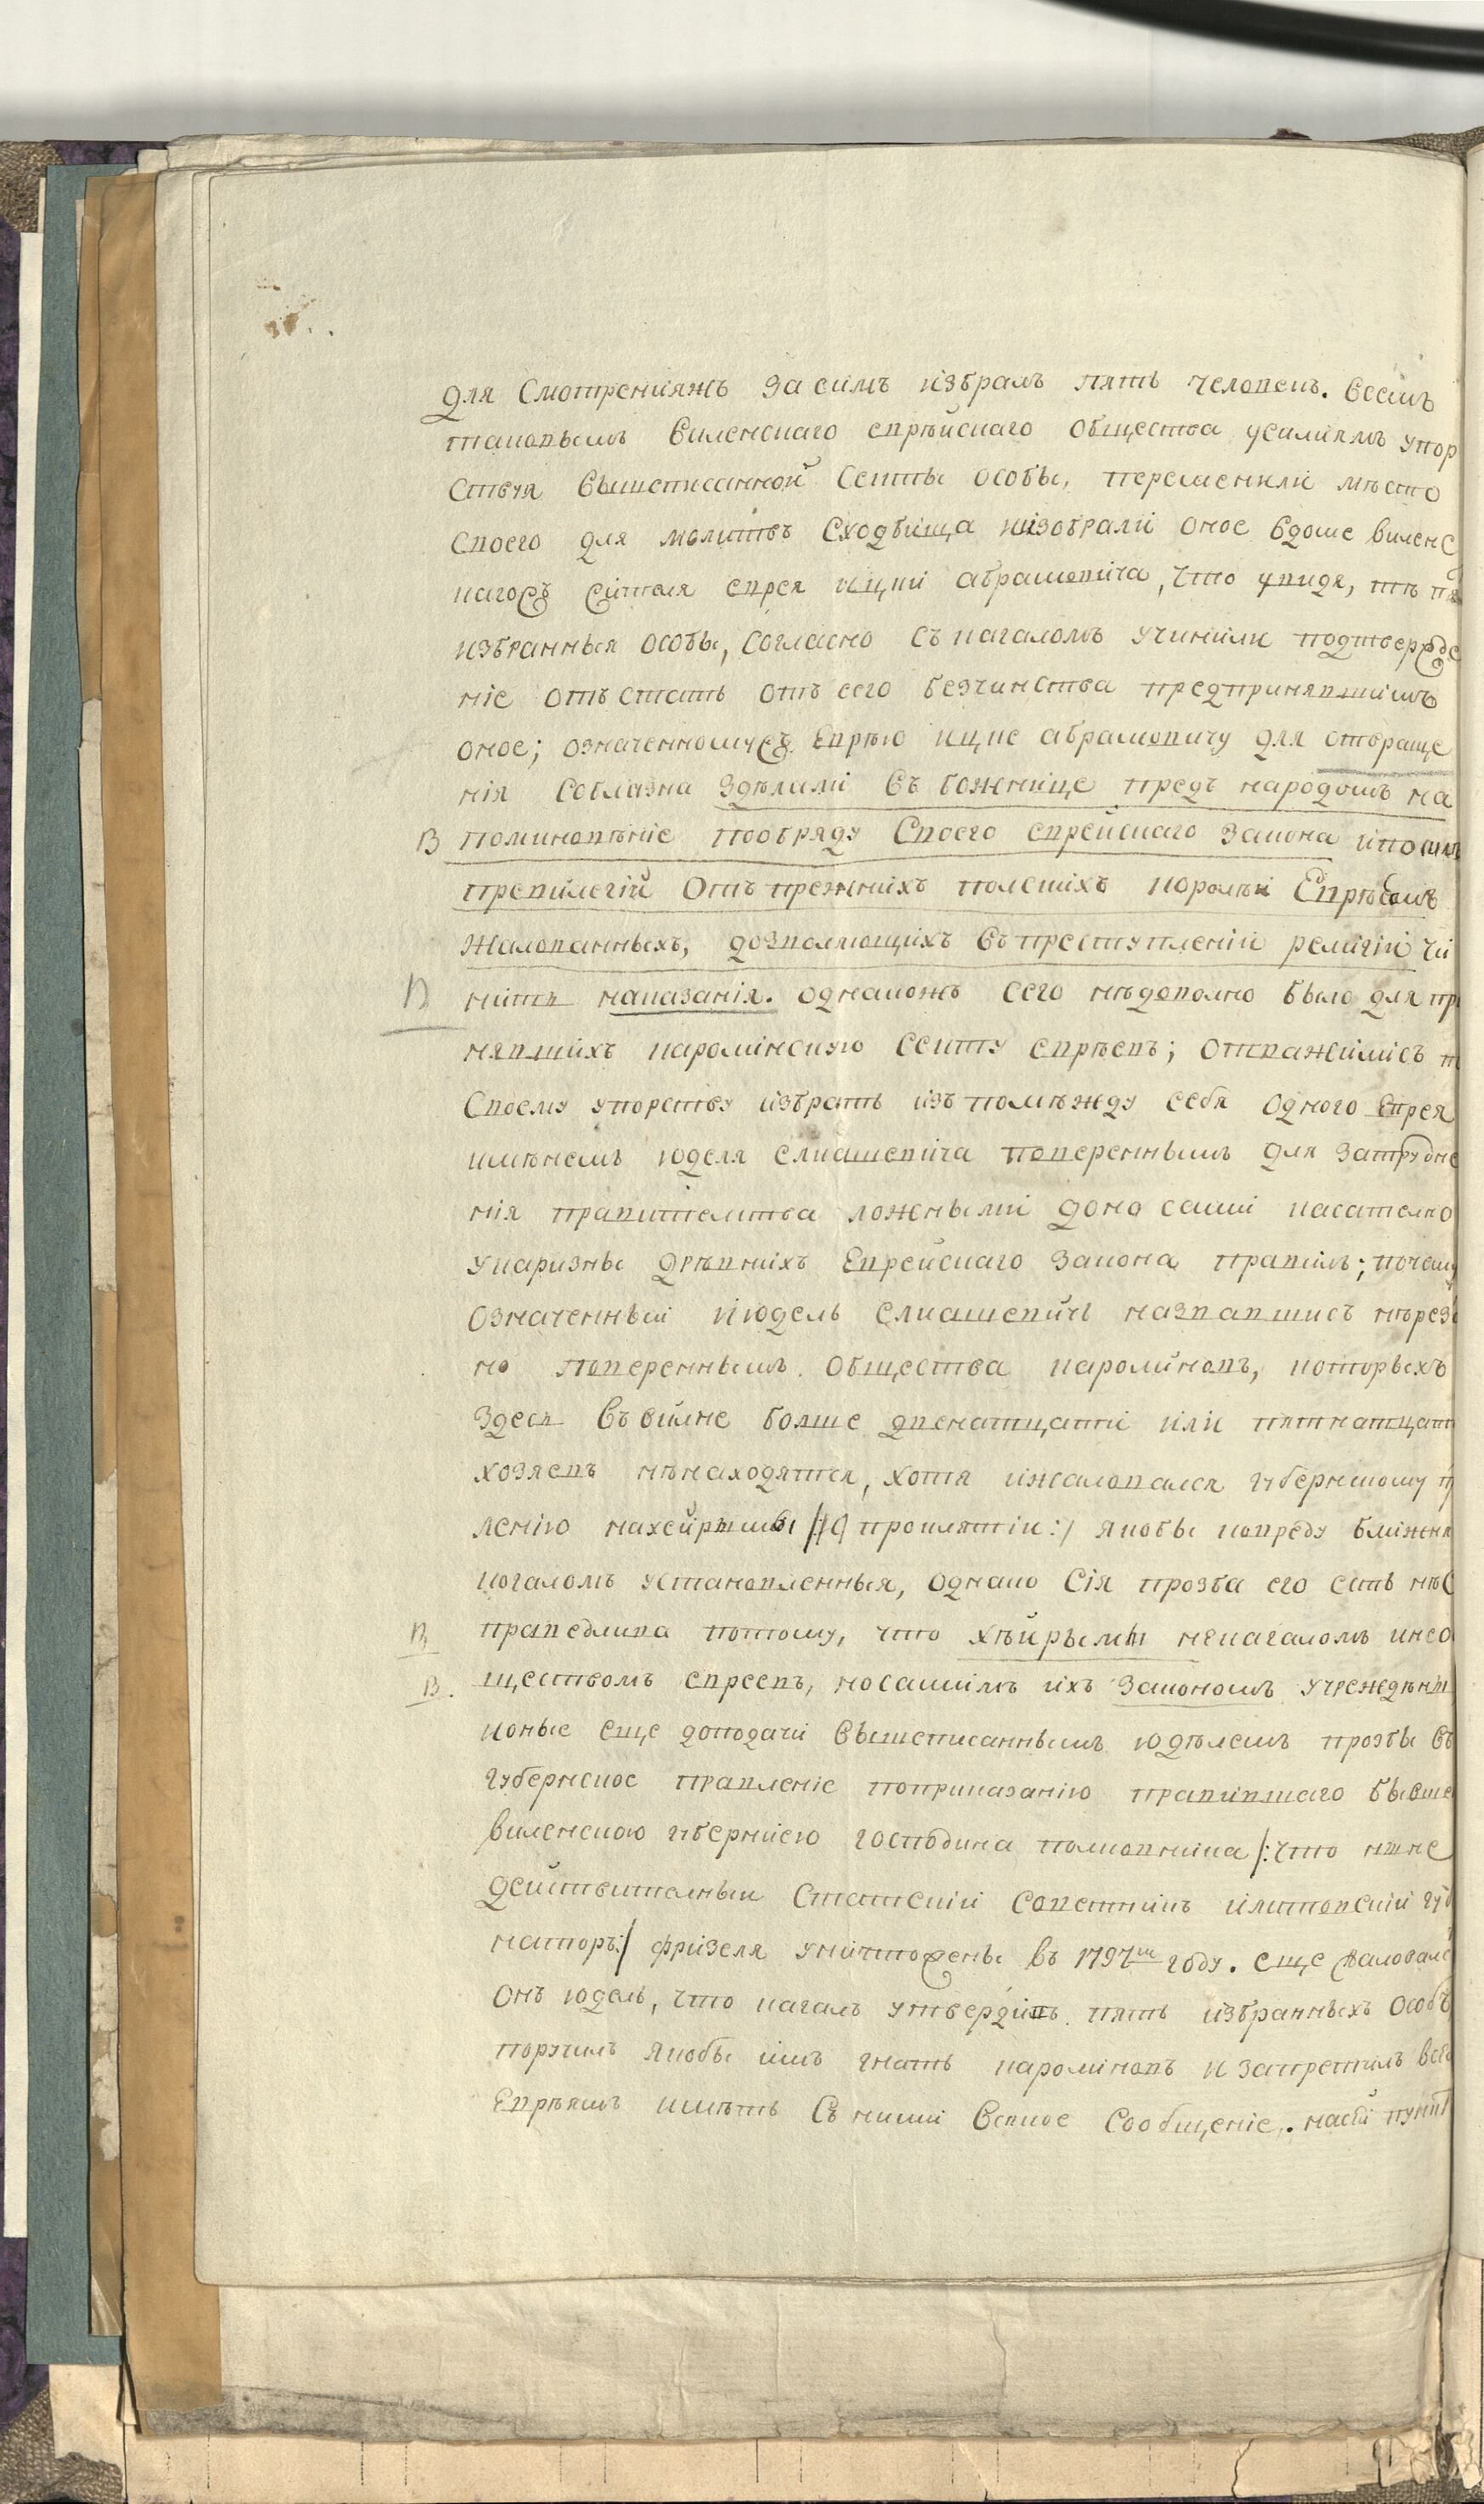 для смотренияжъ за симъ избралъ пять человекъ. всемъ
таковымъ виленскаго еврѣйскаго общества усилиямъ упор
ствуя вышеписанной секты особы, переменили мѣсто
своего для молитвъ сходбища иизобрали оное вдоме виленс
кагожъ жителя еврея ицки абрамовича, что увидя, тѣ пя
избранныя особы, согласно съ кагаломъ учинили подтвержде
ніе отъ стать отъ сего безчинства предпринявшимъ
оное; означенномужъ Еврѣю ицке абрамовичу для отвраще
нія соблазна здѣлали въ божнице предъ народомъ на
В поминовѣніе пообряду своего еврейскаго закона ипосил
превилегій отъ прежнихъ полскихъ королѣй Еврѣемъ
жалованныхъ, дозволяющихъ въ преступленіи религіи чи
В нить наказанія. однакожъ сего нѣдоволно было для пр
нявшихъ каролинскую секту еврѣевъ; отважились п
своему упорству избрать изъ помѣжду себя одного Еврея
имѣнемъ юделя елиашевича повереннымъ для затрудне
нія правителства ложными доно сами касателно
укаризны дрѣвнихъ Еврейскаго закона правилъ; почему
означенный июдель елиашевичь назвавшись нѣрезо
но повереннымъ общества каролиновъ, которыхъ
здесь въ вилне болше двенатцати или пятнатцати
хозяевъ нѣнаходятся, хотя ижаловался губернскому п
лению нахейрымы /: проклятіи :/ якобы ковреду ближня
кагаломъ установленныя, однако сія прозба его есть нѣс
В праведлива потому, что хѣйрымы некагаломъ инео
В. ществомъ евреевъ, носамимъ ихъ закономъ учреждены
ионые еще доподачи вышеписаннымъ юдѣлемъ прозбы въ
губернское правленіе поприказанію правившаго бывше
виленскою губерниею господина полковника /: что нынe
действителныи статскій советникъ илитовский губ
наторъ :/ фризеля уничтожены въ 1797м году. еще жаловалс
онъ юдель, что кагалъ утвердивъ пять избранныхъ особъ
поручилъ якобы имъ гнать каролиновъ и запретилъ всѣ
Еврѣямъ имѣть съ ними всякое сообщеніе. насей пункт